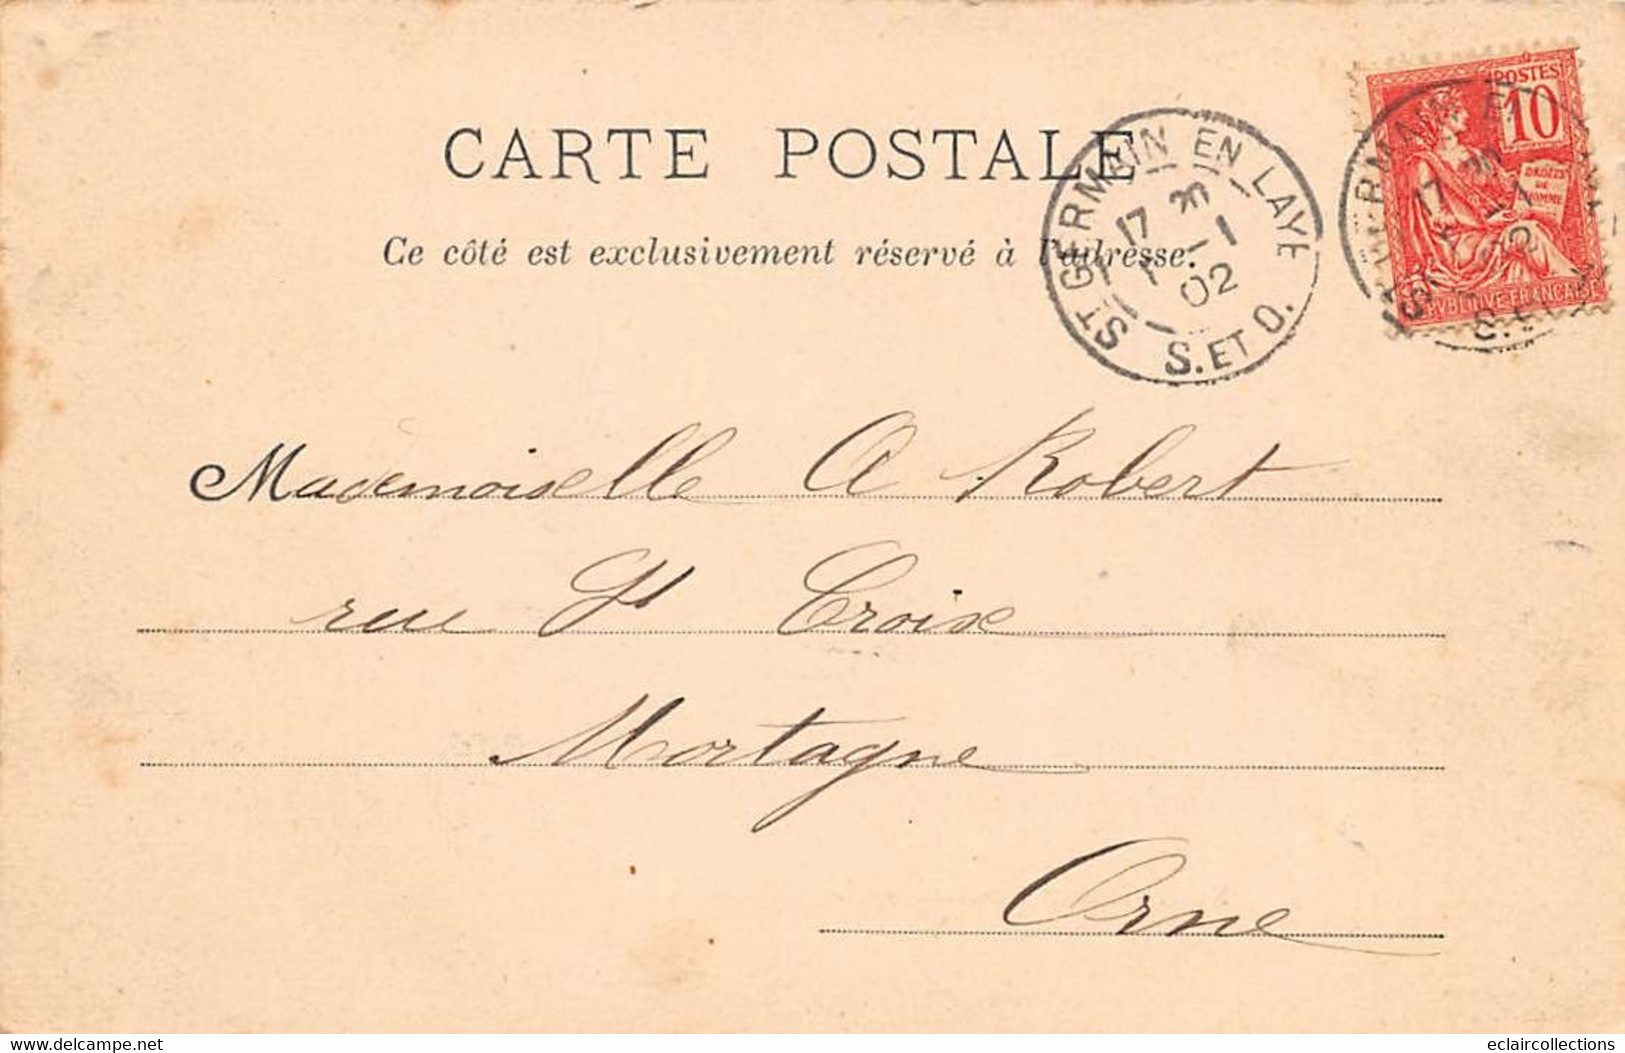 CARTE POSTALE
Ce côté est exclusivement réservé à l'adresse.
ST GERMAIN EN LAYE
17 20
1 - 1
02
S. ET O.
POSTES
10
DROITS
DE
L'HOMME
REPUBLIQUE FRANÇAISE
Mademoiselle A Robert
rue St Croix
Mortagne
Orne
delcampe.net
eclaircollections